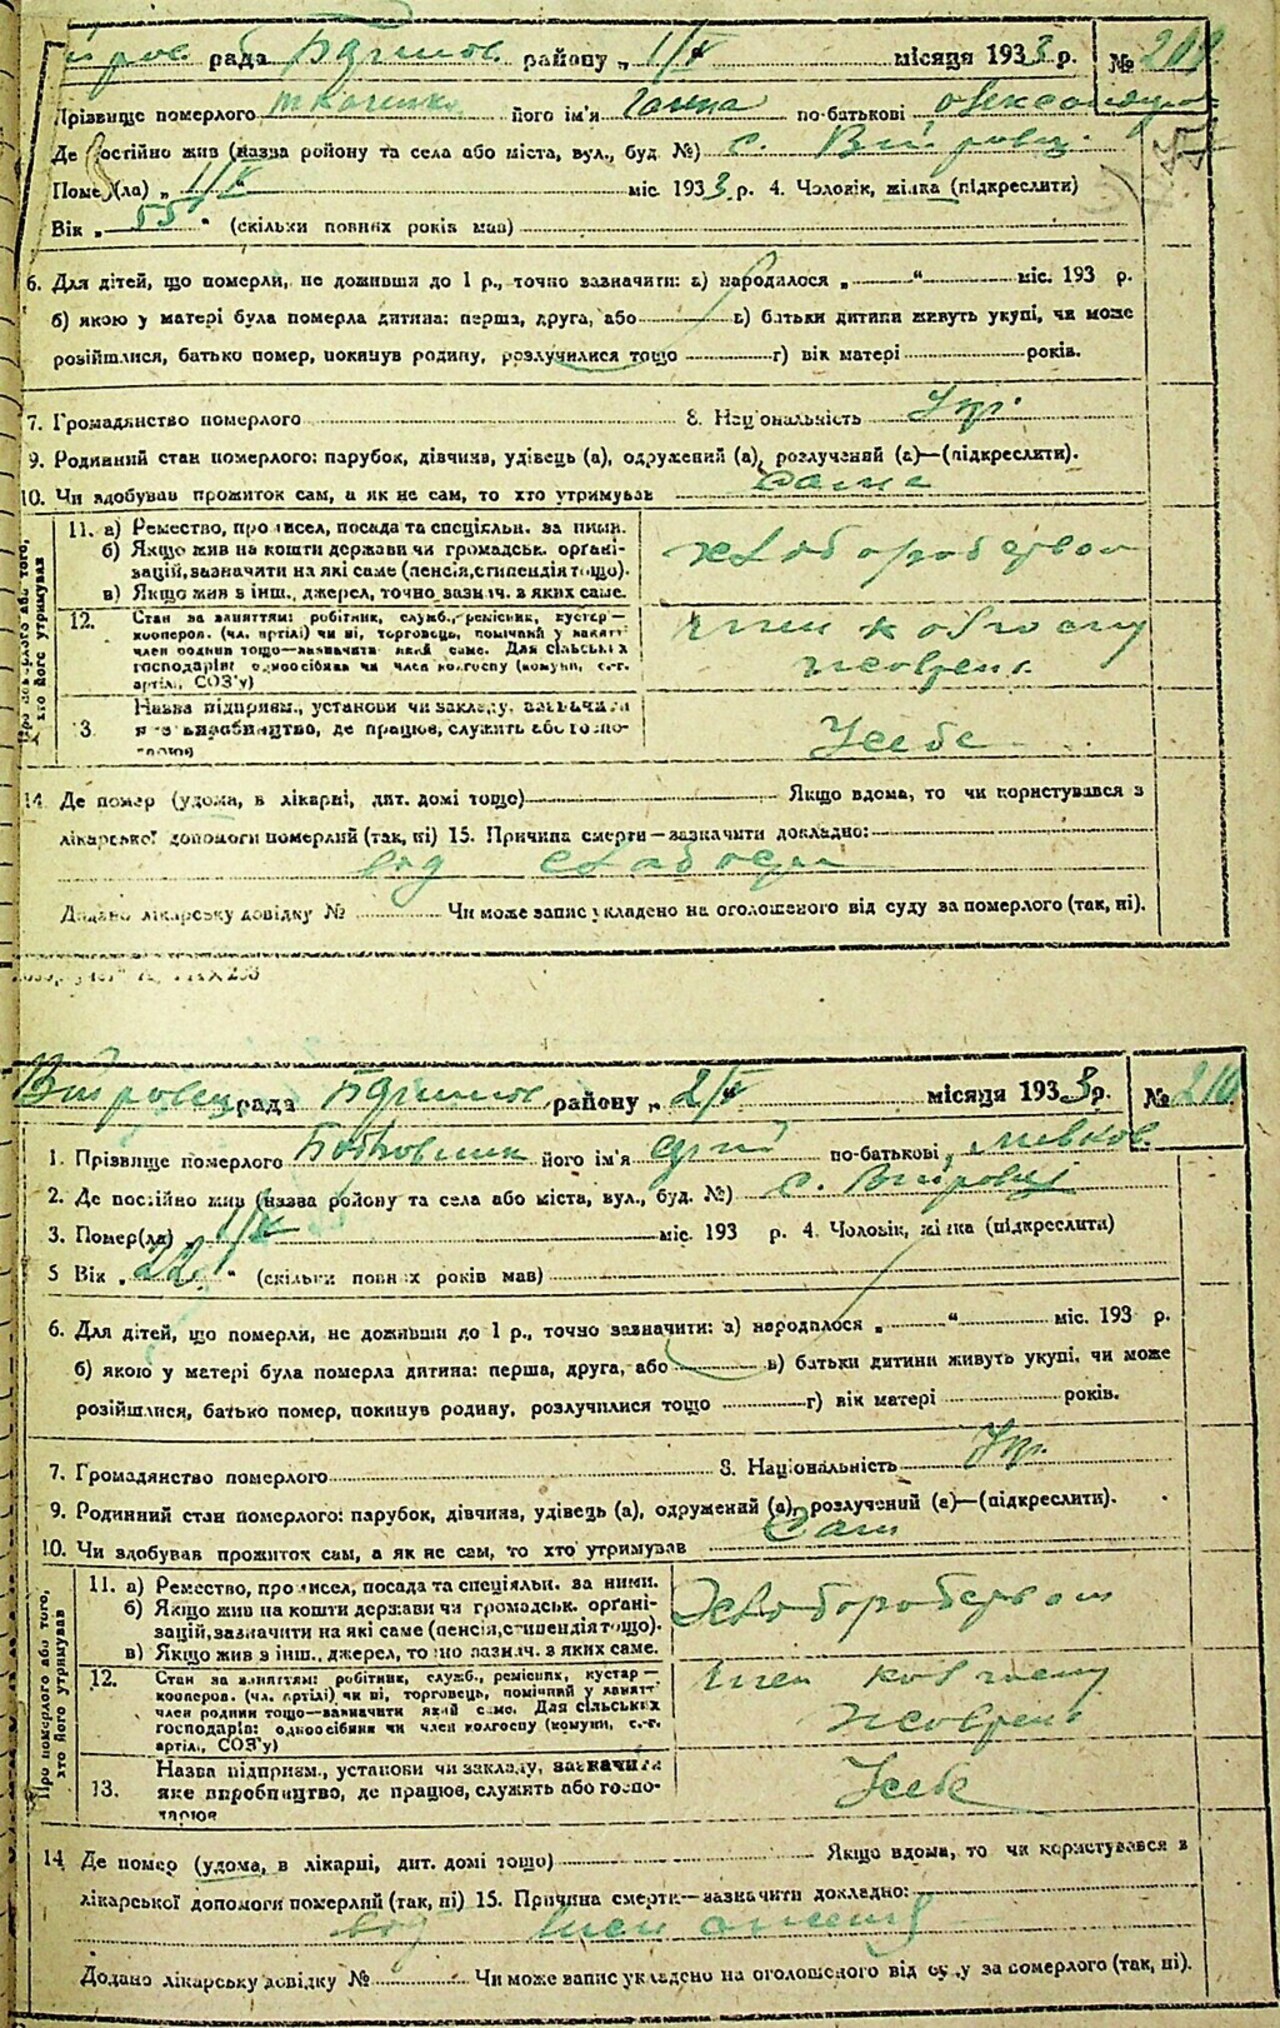 рада районо „ 1/V місяця 1933 р. № 209
Прізвище померлого Ткаченко його ім'я Ганна по-батькові
Де постійно жив (назва ройону та села або міста, вул., буд. №) с. Вийровці
Поме (ла) „ 1/V міс. 1933 р. 4. Чоловік, жінка (підкреслити)
Вік „ 55 " (скільки повних років мав)
6. Для дітей, що померли, не доживши до 1 р., точно зазначити: а) народилося „ “ міс. 193 р.
б) якою у матері була померла дитина: перша, друга, або в) батьки дитини живуть укупі, чи може
розійшлися, батько помер, покинув родину, розлучилися тощо г) вік матері років.
7. Громадянство померлого 8. Національність Укр.
9. Родинний стан померлого: парубок, дівчина, удівець (а), одружений (а), розлучений (а)—(підкреслити).
10. Чи здобував прожиток сам, а як не сам, то хто утримував сама
11. а) Ремество, промисел, посада та спеціяльн. за ними.
б) Якщо жив на кошти держави чи громадськ. органі-
зацій, зазначити на які саме (пенсія, стипендія тощо).
в) Якщо жив з інш., джерел, точно зазнач. з яких саме.
хліборобство
12. Стан за заняттям: робітник, служб., ремісник, кустар—
кооперов. (чл. артілі) чи ні, торговець, помічний у занятт
член родини тощо—зазначити який саме. Для сільських
господарів: одноосібник чи член колгоспу (комуни, с.-г.
артіл., СОЗ'у)
член колгоспу
13. Назва підприєм., установи чи закладу, зазначити
яке виробництво, де працює, служить або госпо-
дарює
У себе
14 Де помер (удома, в лікарні, дит. домі тощо) Якщо вдома, то чи користувався з
лікарської допомоги померлий (так, ні) 15. Причина смерти—зазначити докладно:
від слабости
Додано лікарську довідку № Чи може запис укладено на оголошеного від суду за померлого (так, ні).
рада району „ 2/V місяця 1933 р. № 210
1. Прізвище померлого його ім'я по-батькові
2. Де постійно жив (назва ройону та села або міста, вул., буд. №) с. Вийровці
3. Помер(ла) „ 1/V міс. 193 р. 4. Чоловік, жінка (підкреслити)
5 Вік „ 22 “ (скільки повних років мав)
6. Для дітей, що померли, не доживши до 1 р., точно зазначити: а) народилося „ “ міс. 193 р.
б) якою у матері була померла дитина: перша, друга, або в) батьки дитини живуть укупі, чи може
розійшлися, батько помер, покинув родину, розлучилися тощо г) вік матері років.
7. Громадянство померлого 8. Національність Укр.
9. Родинний стан померлого: парубок, дівчина, удівець (а), одружений (а), розлучений (а)—(підкреслити).
10. Чи здобував прожиток сам, а як не сам, то хто утримував сам
Про померлого або того,
хто його утримував
11. а) Ремество, промисел, посада та спеціяльн. за ними.
б) Якщо жив на кошти держави чи громадськ. органі-
зацій, зазначити на які саме (пенсія, стипендія тощо).
в) Якщо жив з інш., джерел, точно зазнач. з яких саме.
Хліборобство
12. Стан за заняттям: робітник, служб., ремісник, кустар—
кооперов. (чл. артілі) чи ні, торговець, помічний у занятт
член родини тощо—зазначити який саме. Для сільських
господарів: одноосібник чи член колгоспу (комуни, с.-г.
артіл., СОЗ'у)
член колгоспу
13. Назва підприєм., установи чи закладу, зазначити
яке виробництво, де працює, служить або госпо-
дарює
У себе
14 Де помер (удома, в лікарні, дит. домі тощо) Якщо вдома, то чи користувався з
лікарської допомоги померлий (так, ні) 15. Причина смерти—зазначити докладно:
від
Додано лікарську довідку № Чи може запис укладено на оголошеного від суду за померлого (так, ні).